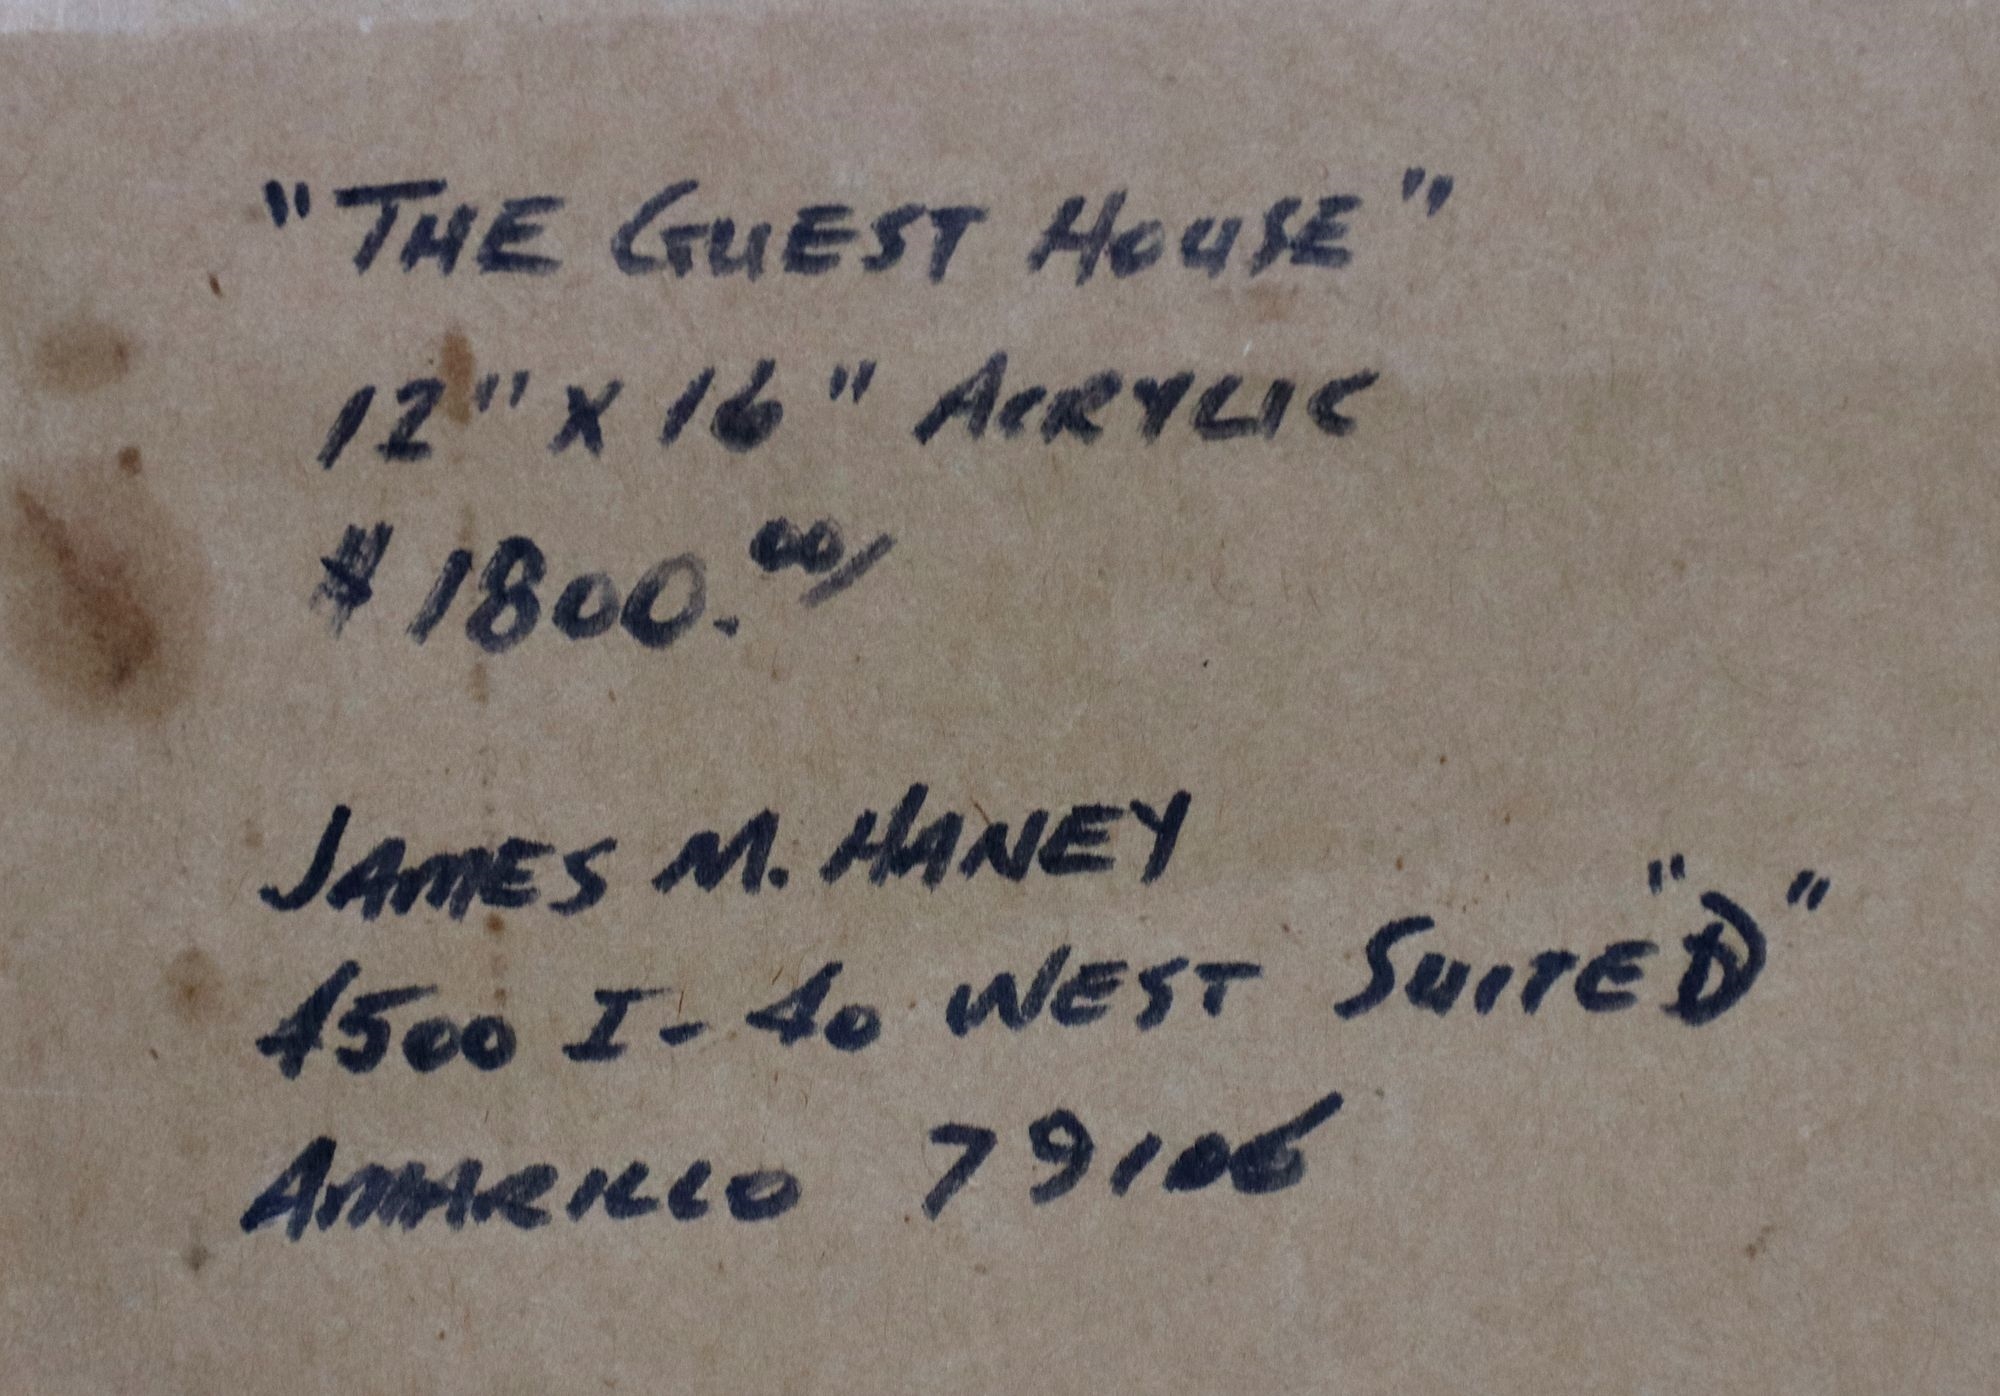 "THE GUEST HOUSE"
12" X 16" ACRYLIC
$1800.00/
JAMES M. HANEY
4500 I-40 WEST SUITE "D"
AMARILLO 79106